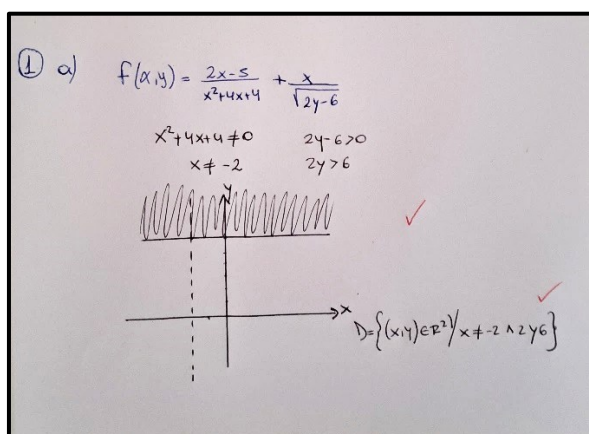 ① a) f(x,y) = \frac{2x-5}{x²+4x+4} + \frac{x}{\sqrt{2y-6}}
x²+4x+4≠0 2y-6>0
x≠-2 2y>6
y
x
D={(x,y)∈R²/x≠-2 ∧ 2y6}